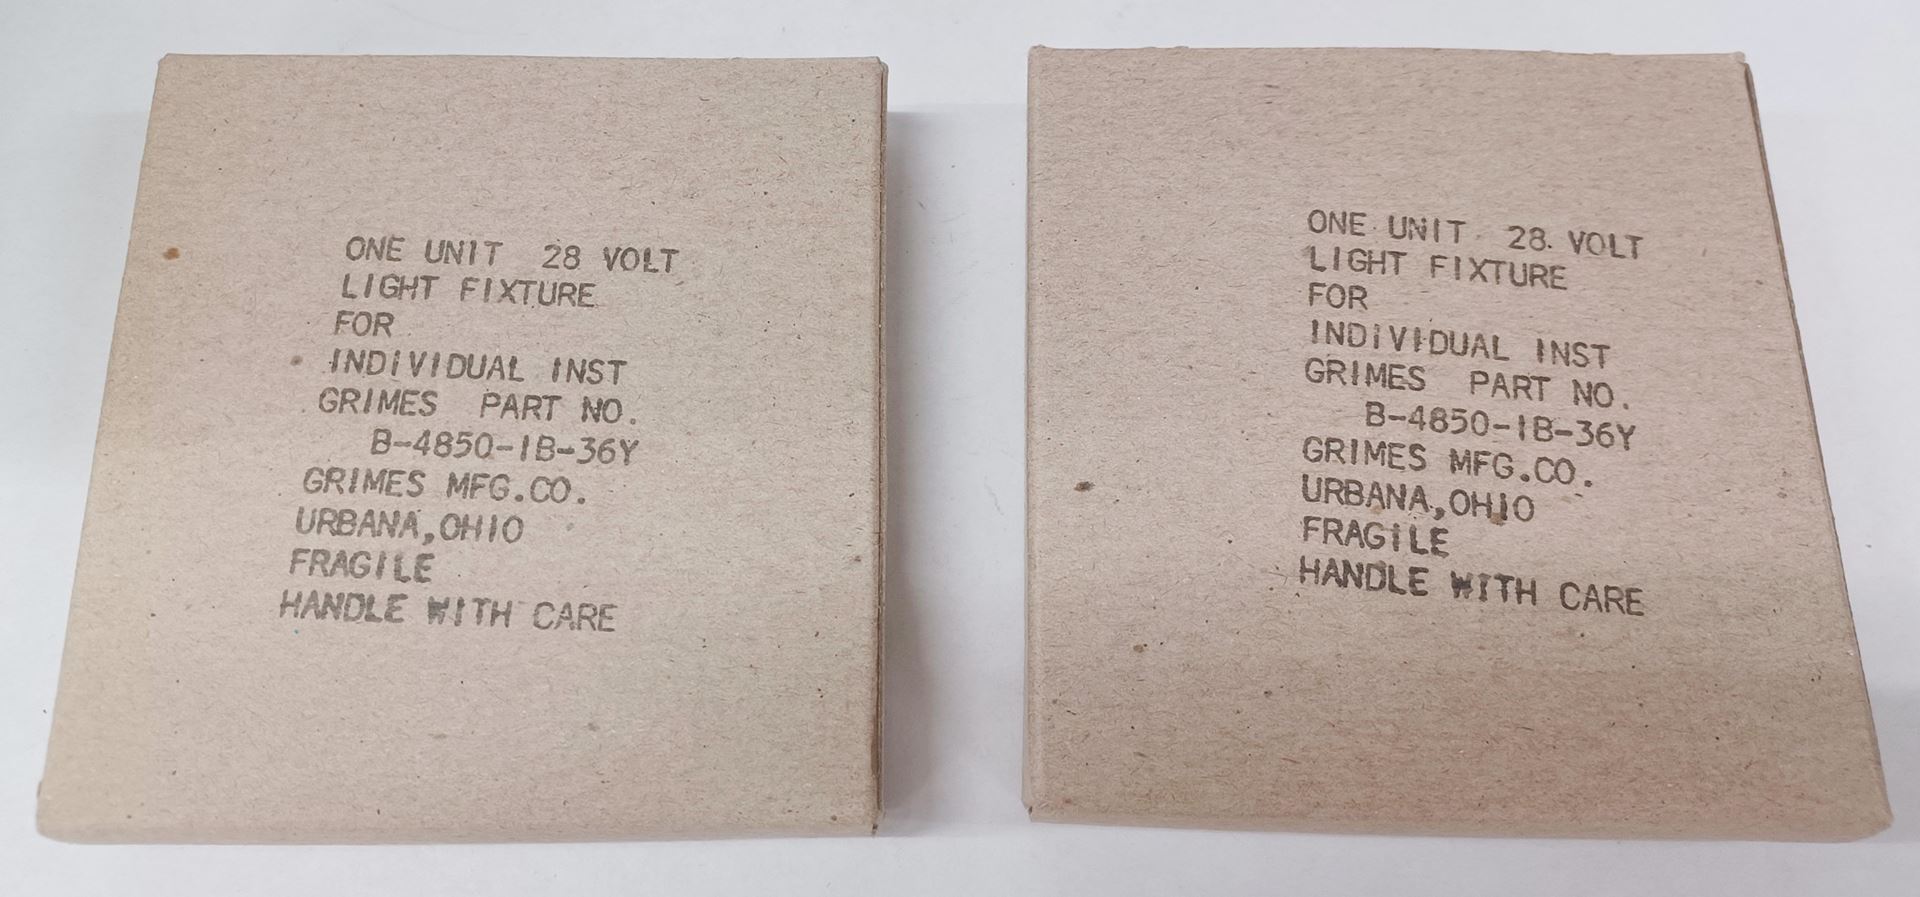 ONE UNIT 28 VOLT
LIGHT FIXTURE
FOR
INDIVIDUAL INST
GRIMES PART NO.
B-4850-1B-36Y
GRIMES MFG.CO.
URBANA,OHIO
FRAGILE
HANDLE WITH CARE
ONE UNIT 28 VOLT
LIGHT FIXTURE
FOR
INDIVIDUAL INST
GRIMES PART NO.
B-4850-1B-36Y
GRIMES MFG.CO.
URBANA,OHIO
FRAGILE
HANDLE WITH CARE